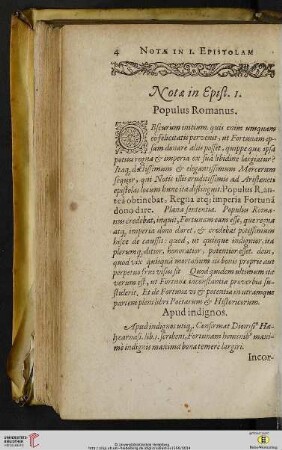 4 NOTÆ IN I. EPISTOLAM
Notæ in Epist. 1.
Populus Romanus.
OBscurum initium quis enim umquam
eo felicitatis pervenit, ut Fortunam ipsam
donare aliis posset, quippe quæ ipsa
potius regna & imperia ex sua libidine largiatur?
Itaq; doctissimum & elegantissimum Mercerum
sequor, qui Notis illis eruditissimis ad Aristæneti
epistolas locum hunc ita distinguit. Populus R. antea
obtinebat, Regna atq; imperia Fortunâ
dono dare. Plana sententia. Populus Romanus
credebat, inquit, Fortunam eam esse, quæ regna
atq; imperia dono daret, & credebat potissimum
hisce de caussis: quod, ut quisque indignior, ita
plerum q; ditior, honoratior, potentior esset.
quod vix quisquam mortalium iis bonis proprie aut
perpetuo frui visus sit. Quod quidem ultimum ita
verum est, ut Fortunæ inconstantia proverbio
Et de Fortunæ vi & potentia in utramque
partem pleni libri Poetarum & Historicorum.
Apud indignos.
Apud indignos utiq; Confirmat Dionys9
lib.1. scribens, Fortunam hominib9 maxime
indignis maxima bona temere largiri.
Incor-